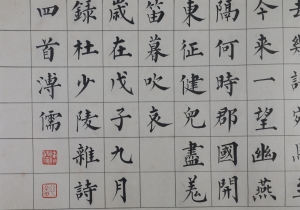 今来一望幽燕
隔何時郡國開
東征健兒盡羌
笛暮吹哀
歲在戊子九月
錄杜少陵雜詩
四首溥儒